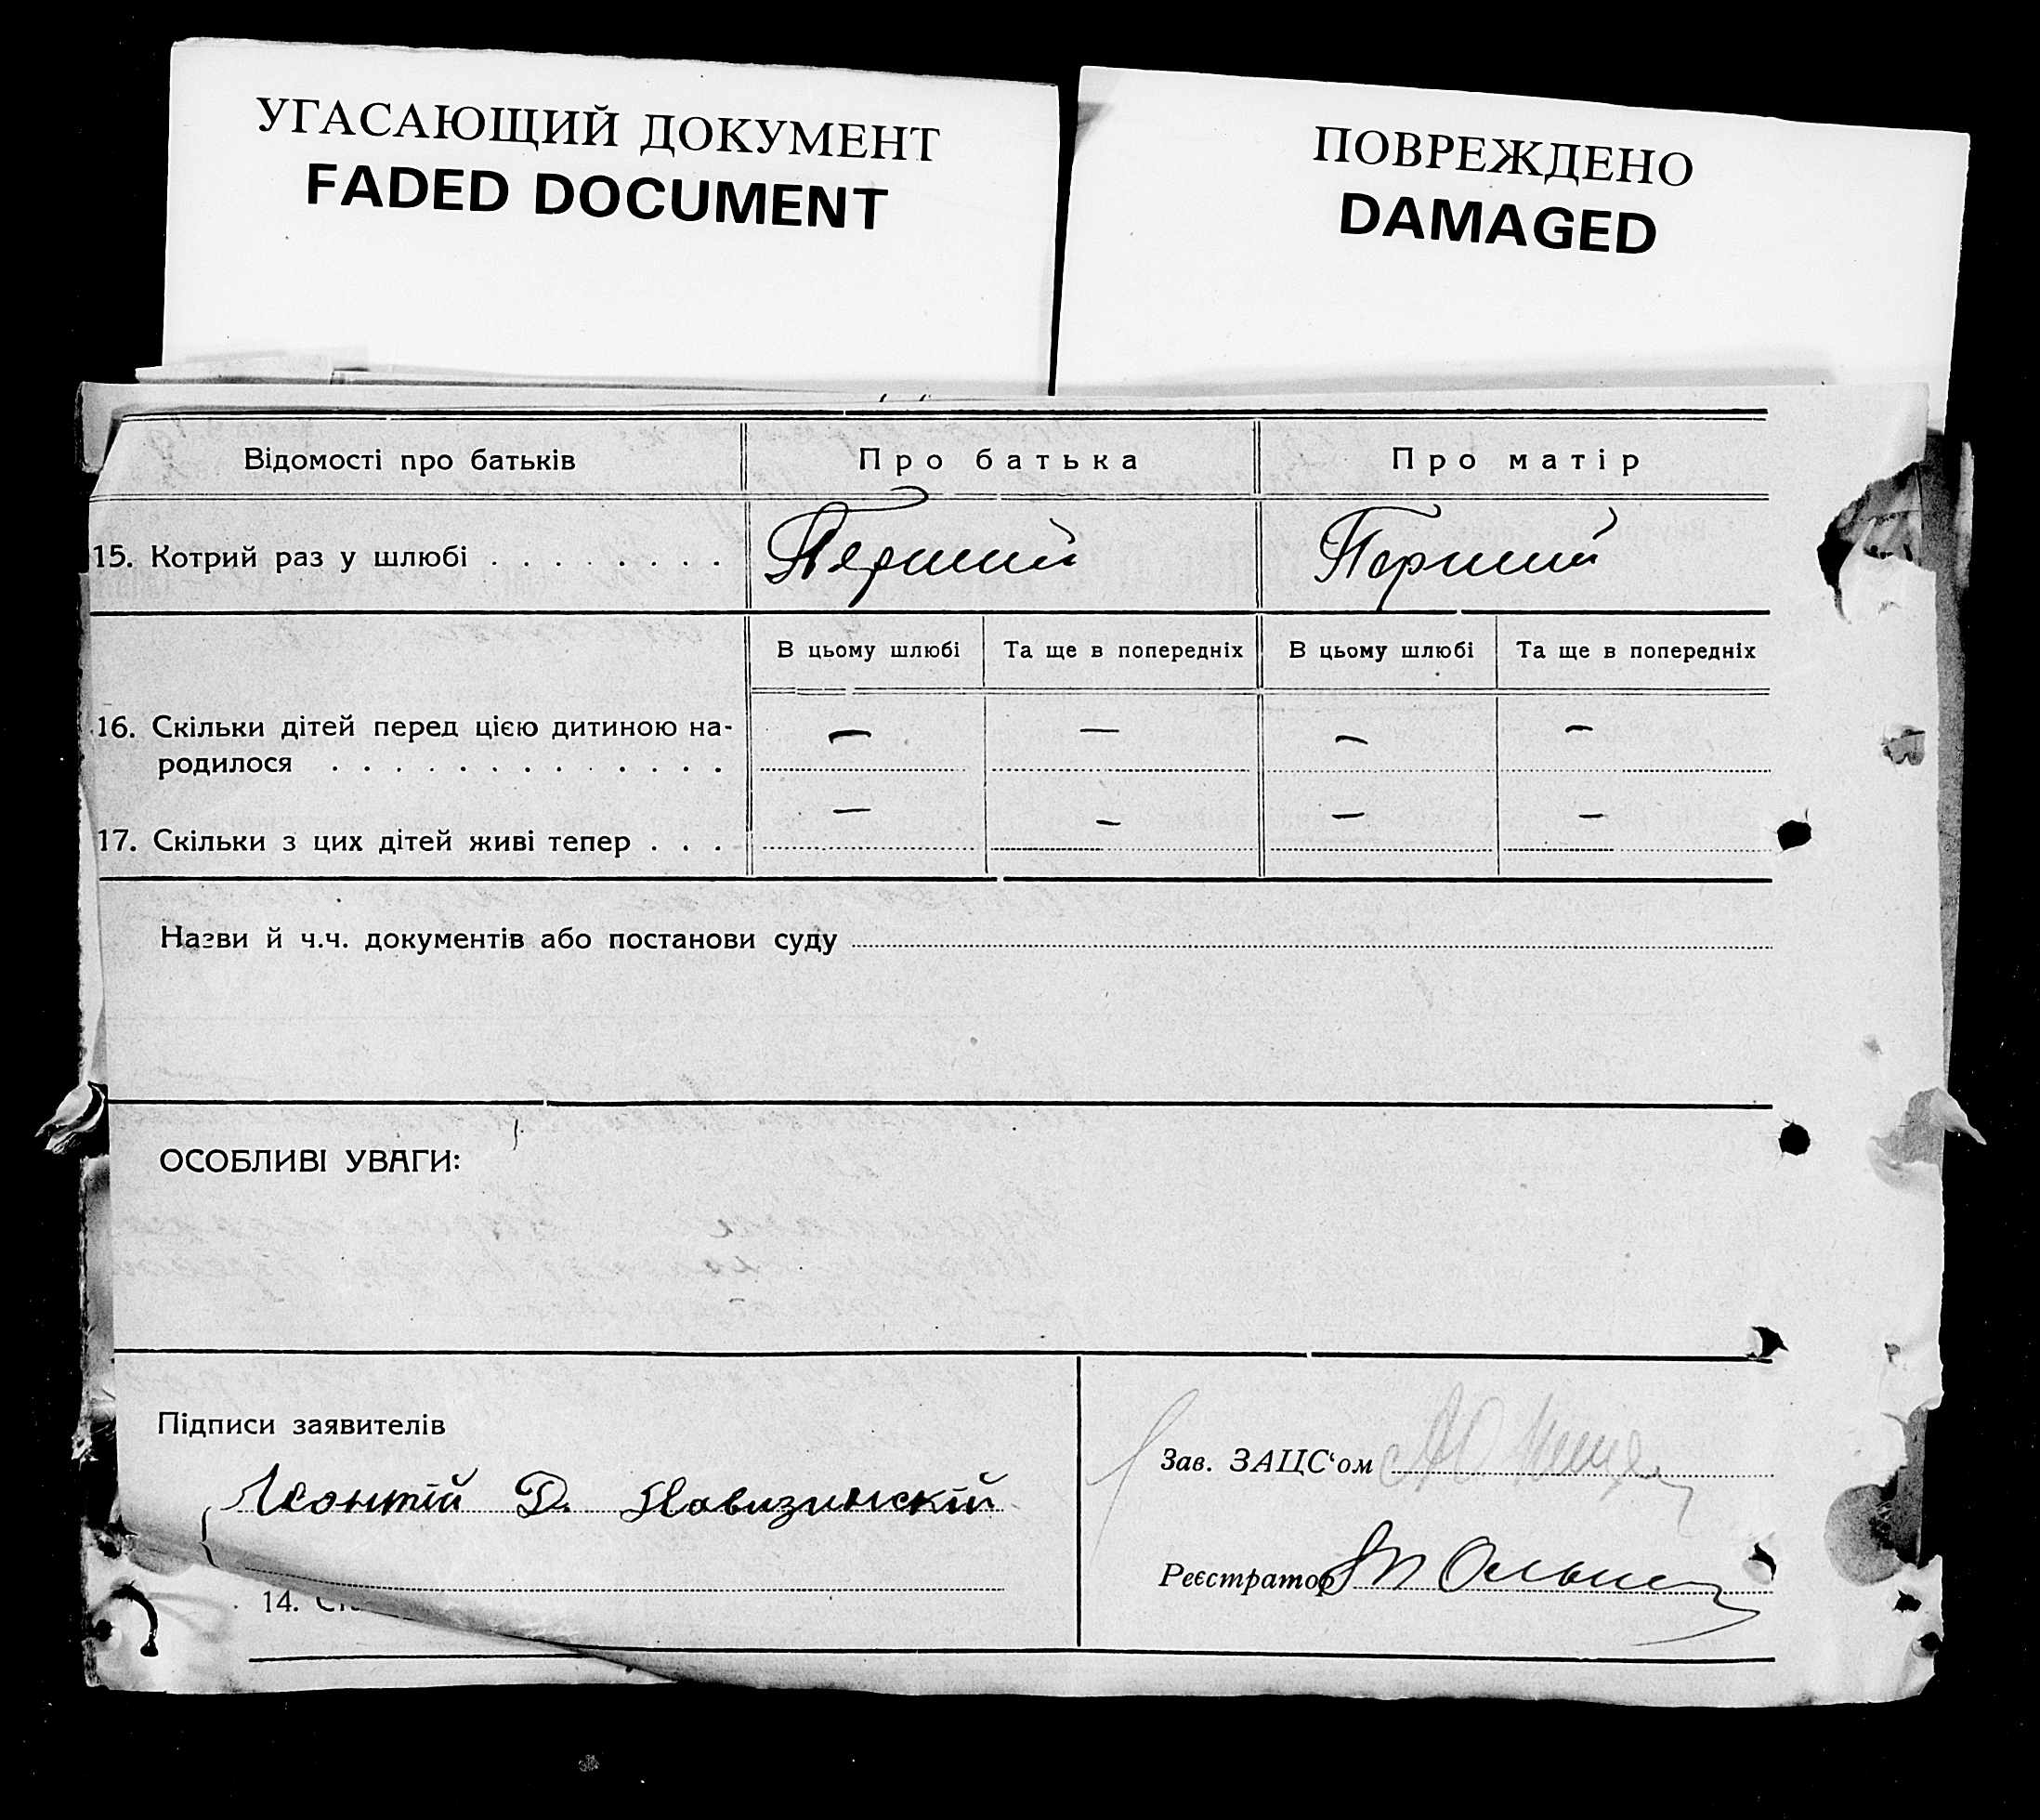 УГАСАЮЩИЙ ДОКУМЕНТ
FADED DOCUMENT
ПОВРЕЖДЕНО
DAMAGED
Відомості про батьків Про батька Про матір
15. Котрий раз у шлюбі . . . . . . . . Перший Перший
В цьому шлюбі Та ще в попередніх В цьому шлюбі Та ще в попередніх
16. Скільки дітей перед цією дитиною на- — — — —
родилося . . . . . . . . . . . . .
17. Скільки з цих дітей живі тепер . . . — — — —
Назви й ч.ч. документів або постанови суду
ОСОБЛИВІ УВАГИ:
Підписи заявителів
Леонтій Д.
Зав. ЗАЦС‘ом
Реєстратор
14.